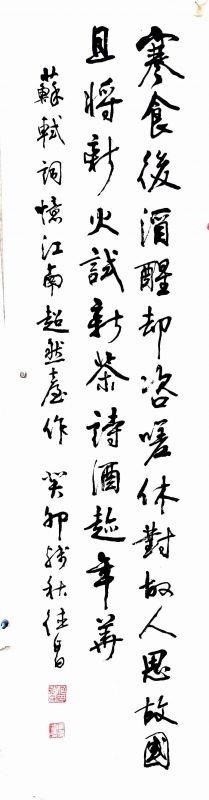 寒食後酒醒却咨嗟休對故人思故國
且將新火試新茶詩酒趁年華
蘇軾詞憶江南超然臺作 癸卯殘秋佳昌